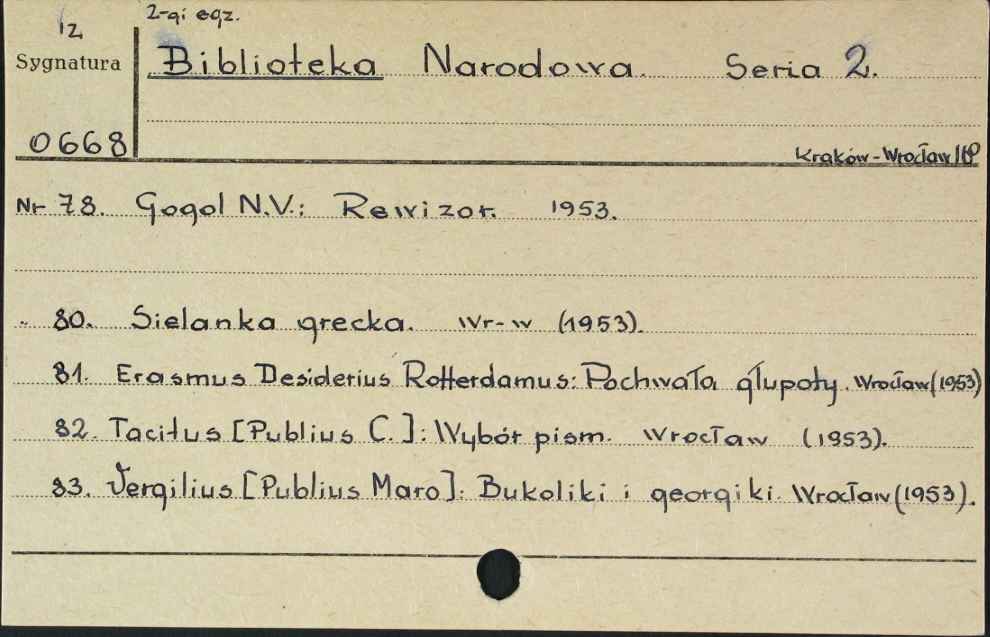 2-gi egz.
Iz
Sygnatura Biblioteka Narodowa. Seria 2.
0668
Kraków-Wrocław
Nr 78. Gogol N.V.: Rewizor. 1953.
" 80. Sielanka grecka. Wr-w (1953).
81. Erasmus Desiderius Rotterdamus: Pochwała głupoty. Wrocław (1953)
82. Tacitus [Publius C.]: Wybór pism. Wrocław (1953).
83. Vergilius [Publius Maro]: Bukoliki i georgiki. Wrocław (1953).